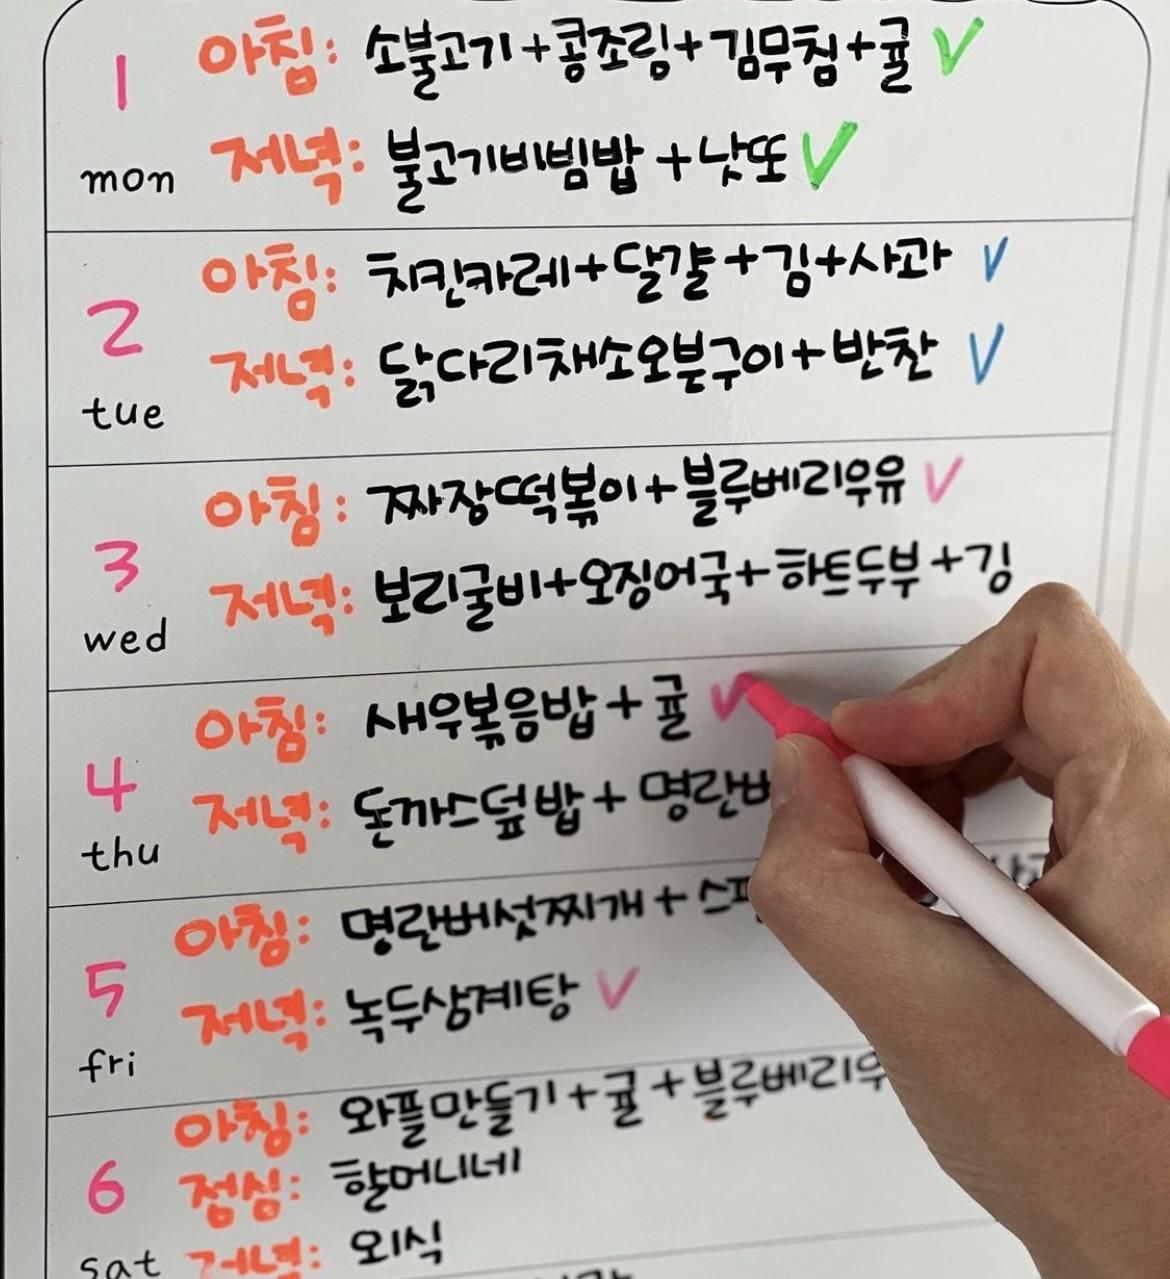 1 아침: 소불고기+콩조림+김무침+귤
mon 저녁: 불고기비빔밥+낫또
2 아침: 치킨카레+달걀+김+사과
tue 저녁: 닭다리채소오븐구이+반찬
3 아침: 짜장떡볶이+블루베리우유
wed 저녁: 보리굴비+오징어국+하트두부+김
4 아침: 새우볶음밥+귤
thu 저녁: 돈까스덮밥+명란
5 아침: 명란버섯찌개+
fri 저녁: 녹두삼계탕
6 아침: 와플만들기+귤+블루베리우
점심: 할머니네
sat 저녁: 외식